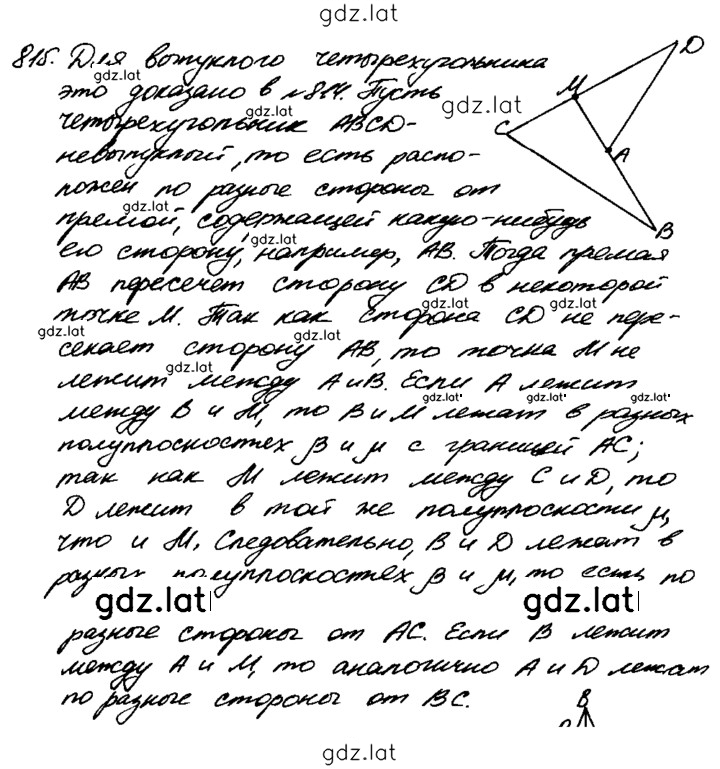 gdz.lat
815. Для выпуклого четырехугольника
gdz.lat
это доказано в №814. Пусть
gdz.lat
gdz.lat
четырехугольник ABCD-
невыпуклый, то есть распо-
ложен по разные стороны от
gdz.lat
прямой, содержащей какую-нибудь
gdz.lat
его сторону, например, AB. Тогда прямая
AB пересечет сторону CD в некоторой
gdz.lat
gdz.lat
точке M. Так как сторона CD не пере-
gdz.lat
gdz.lat
секает сторону AB, то точка M не
gdz.lat
лежит между A и B. Если A лежит
gdz.lat
gdz.lat
gdz.lat
между B и M, то B и M лежат в разных
полуплоскостях β и μ с границей AC;
так как M лежит между C и D, то
D лежит в той же полуплоскости μ,
что и M. Следовательно, B и D лежат в
разных полуплоскостях β и μ, то есть по
gdz.lat
gdz.lat
разные стороны от AC. Если B лежит
между A и M, то аналогично A и D лежат
по разные стороны от BC.
D
M
C
A
B
B
gdz.lat